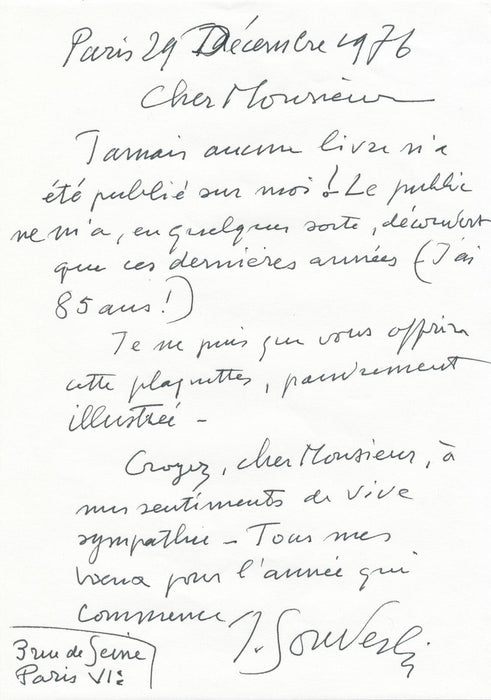 Paris 29 Décembre 1976
Cher Monsieur
Jamais aucun livre n'a
été publié sur moi ! Le public
ne m'a, en quelque sorte, découvert
que ces dernières années (J'ai
85 ans !)
Je ne puis que vous offrir
cette plaquettes, pauvrement
illustrée -
Croyez, cher Monsieur, à
mes sentiments de vive
sympathie - Tous mes
voeux pour l'année qui
commence
3 rue de Seine
Paris VIè